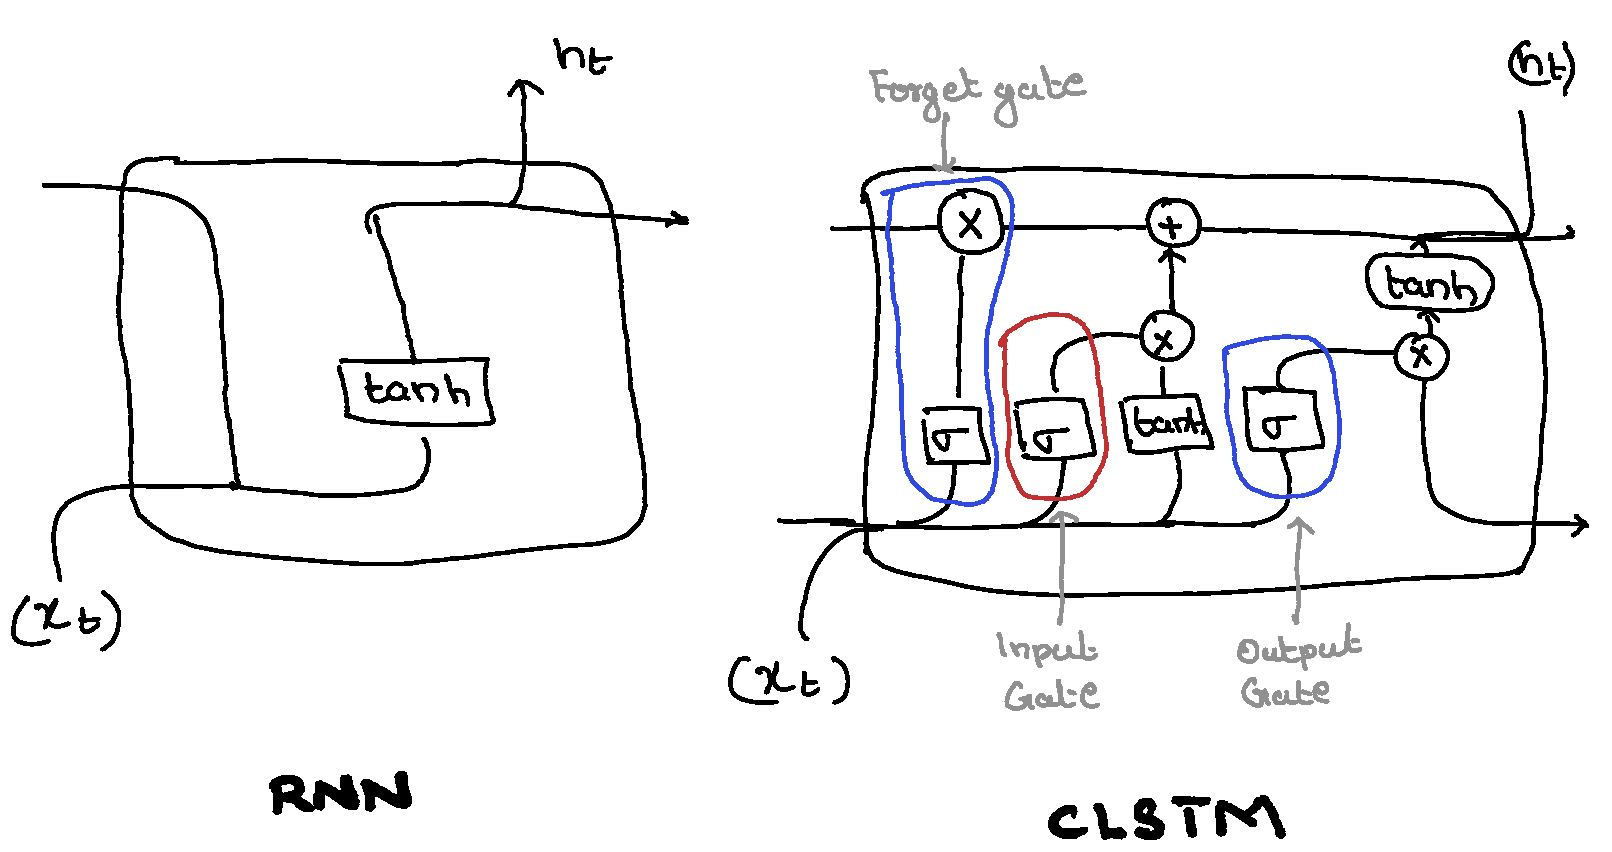 hₜ
tanh
(xₜ)
RNN
Forget gate
(hₜ)
X
+
tanh
x
x
σ
σ
tanh
σ
(xₜ)
Input
Gate
Output
Gate
CLSTM